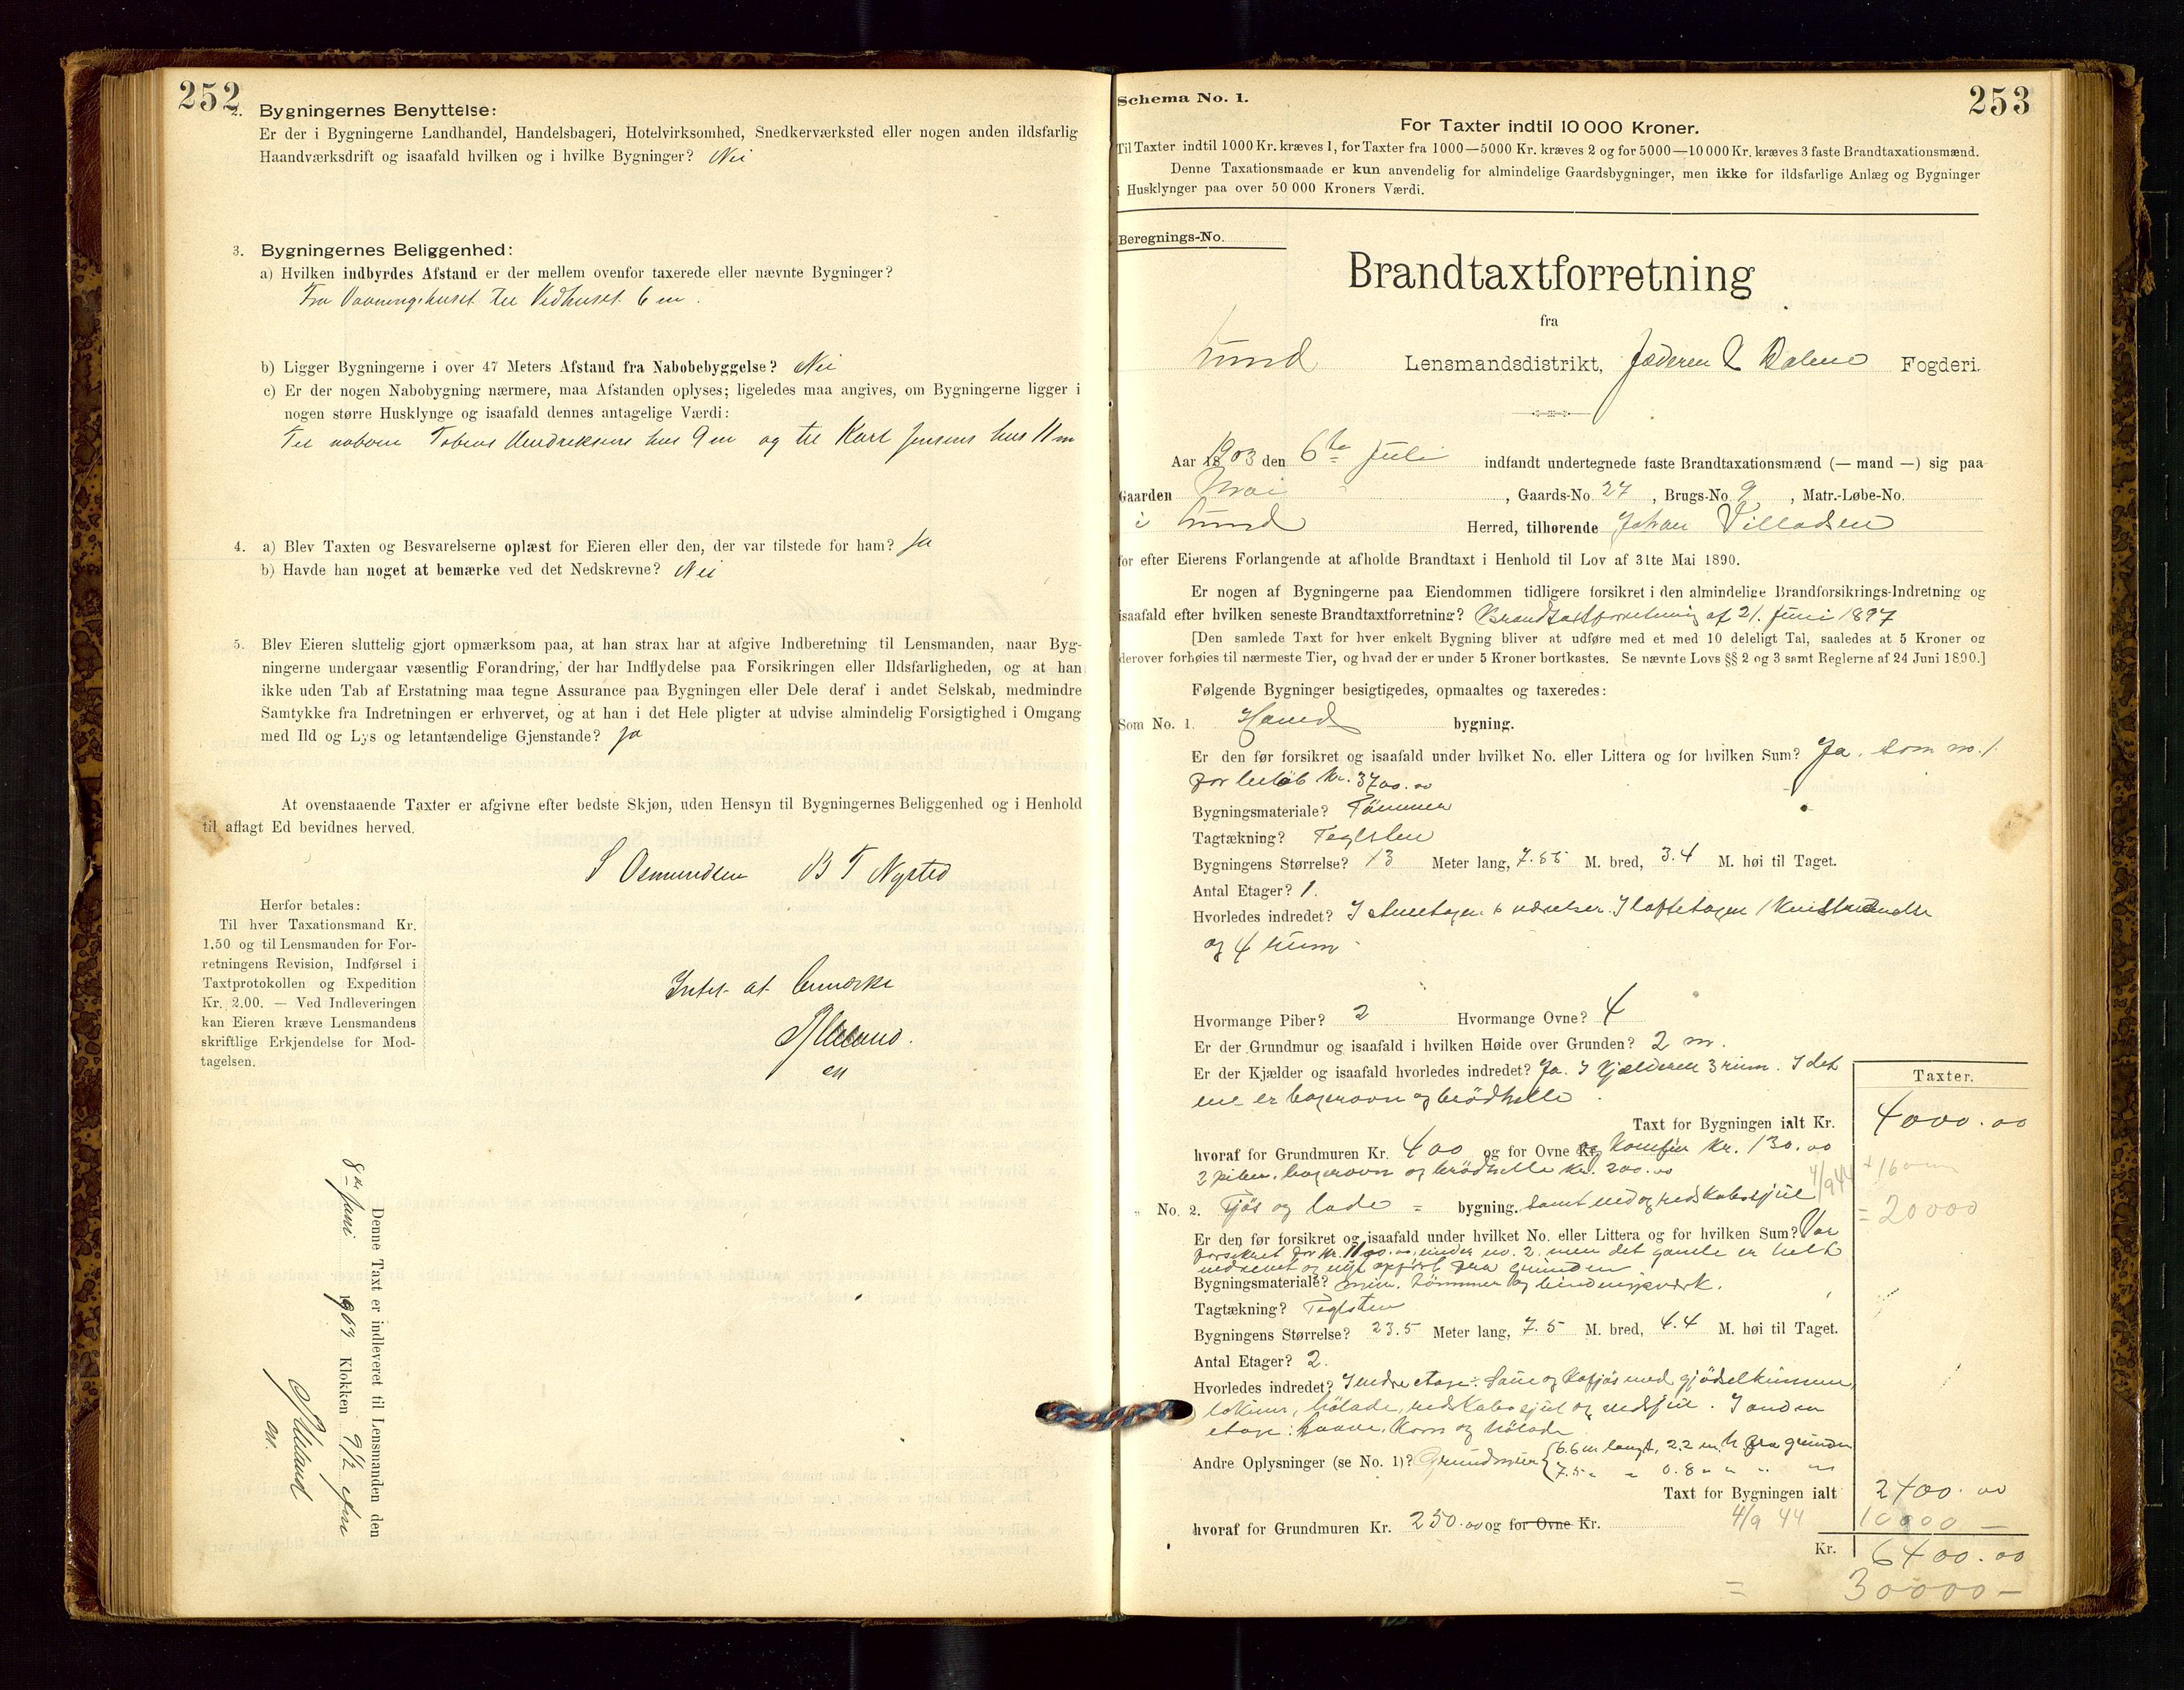 252
2. Bygningernes Benyttelse:
Er der i Bygningerne Landhandel, Handelsbageri, Hotelvirksomhed, Snedkerværksted eller nogen anden ildsfarlig
Haandværksdrift og isaafald hvilken og i hvilke Bygninger? Nei
3. Bygningernes Beliggenhed:
a) Hvilken indbyrdes Afstand er der mellem ovenfor taxerede eller nævnte Bygninger?
Fra Vaaningshuset til Vedhuset 6 m.
b) Ligger Bygningerne i over 47 Meters Afstand fra Nabobebyggelse? Nei
c) Er der nogen Nabobygning nærmere, maa Afstanden oplyses; ligeledes maa angives, om Bygningerne ligger i
nogen større Husklynge og isaafald dennes antagelige Værdi:
Til naboen Tobias Hendriksens hus 9 m og til Karl Jensens hus 11 m
4. a) Blev Taxten og Besvarelserne oplæst for Eieren eller den, der var tilstede for ham? Ja
b) Havde han noget at bemærke ved det Nedskrevne? Nei
5. Blev Eieren sluttelig gjort opmærksom paa, at han strax har at afgive Indberetning til Lensmanden, naar Byg-
ningerne undergaar væsentlig Forandring, der har Indflydelse paa Forsikringen eller Ildsfarligheden, og at han
ikke uden Tab af Erstatning maa tegne Assurance paa Bygningen eller Dele deraf i andet Selskab, medmindre
Samtykke fra Indretningen er erhvervet, og at han i det Hele pligter at udvise almindelig Forsigtighed i Omgang
med Ild og Lys og letantændelige Gjenstande? Ja
At ovenstaaende Taxter er afgivne efter bedste Skjøn, uden Hensyn til Bygningernes Beliggenhed og i Henhold
til aflagt Ed bevidnes herved.
S Osmundsen B T Nysted
Herfor betales:
Til hver Taxationsmand Kr.
1.50 og til Lensmanden for For-
retningens Revision, Indførsel i
Taxtprotokollen og Expedition
Kr. 2.00. — Ved Indleveringen
kan Eieren kræve Lensmandens
skriftlige Erkjendelse for Mod-
tagelsen.
Intet at bemærke
Denne Taxt er indleveret til Lensmanden den
8de Juni 1903 Klokken 9 1/2
253
Schema No. 1.
For Taxter indtil 10 000 Kroner.
Til Taxter indtil 1000 Kr. kræves 1, for Taxter fra 1000—5000 Kr. kræves 2 og for 5000—10 000 Kr. kræves 3 faste Brandtaxationsmænd.
Denne Taxationsmaade er kun anvendelig for almindelige Gaardsbygninger, men ikke for ildsfarlige Anlæg og Bygninger
i Husklynger paa over 50 000 Kroners Værdi.
Beregnings-No.
Brandtaxtforretning
fra
Lund Lensmandsdistrikt, Jæderen & Dalene Fogderi.
Aar 1903 den 6te Juli indfandt undertegnede faste Brandtaxationsmænd (— mand —) sig paa
Gaarden Moi, Gaards-No. 27, Brugs-No. 9, Matr.-Løbe-No.
i Lund Herred, tilhørende Johan Villadsen
for efter Eierens Forlangende at afholde Brandtaxt i Henhold til Lov af 31te Mai 1890.
Er nogen af Bygningerne paa Eiendommen tidligere forsikret i den almindelige Brandforsikrings-Indretning og
isaafald efter hvilken seneste Brandtaxtforretning? Brandtaxtforretning af 21. Juni 1897
[Den samlede Taxt for hver enkelt Bygning bliver at udføre med et med 10 deleligt Tal, saaledes at 5 Kroner og
derover forhøies til nærmeste Tier, og hvad der er under 5 Kroner bortkastes. Se nævnte Lovs §§ 2 og 3 samt Reglerne af 24 Juni 1890.]
Følgende Bygninger besigtigedes, opmaaltes og taxeredes:
Som No. 1. Hoved bygning.
Er den før forsikret og isaafald under hvilket No. eller Littera og for hvilken Sum? Ja. Som no. 1
for beløb Kr. 3700.00
Bygningsmateriale? Tömmer
Tagtækning? Teglsten
Bygningens Størrelse? 13 Meter lang, 7.55 M. bred, 3.4 M. høi til Taget.
Antal Etager? 1.
Hvorledes indredet? I stueetagen 6 værelser. I loftetagen 1
og 4 rum
Hvormange Piber? 2 Hvormange Ovne? 4
Er der Grundmur og isaafald i hvilken Høide over Grunden? 2 m.
Er der Kjælder og isaafald hvorledes indredet? Ja. I Kjælderen 3 rum. I det
ene er bagerovn og brödhelle
Taxter.
Taxt for Bygningen ialt Kr. 4000.00
hvoraf for Grundmuren Kr. 400 og for Ovne og komfur Kr. 130.00
2 piber, bagerovn og brödhelle Kr. 200.00
4/9 44 + 16000
= 20000
" No. 2. Fjös og lade = bygning. samt ved og redskabsskjul
Er den før forsikret og isaafald under hvilket No. eller Littera og for hvilken Sum? Var
forsikret for Kr. 1100.00 under no. 2. men det gamle er helt
nedrevet og nyt opfört fra grunden
Bygningsmateriale? mur, tömmer og bindingsværk.
Tagtækning? Teglsten
Bygningens Størrelse? 23.5 Meter lang, 7.5 M. bred, 4.4 M. høi til Taget.
Antal Etager? 2.
Hvorledes indredet? I nedre etage: Saue og kofjös med gjödselkummer,
lokum, hölade, redskabsskjul og vedskjul. I anden
etage: Laave, Korn og hölade
Andre Oplysninger (se No. 1)? Grundmur {6.6 m langt, 2.2 m h. fra grunden
7.5 " " 0.8 " " " "
Taxt for Bygningen ialt 2400.00
hvoraf for Grundmuren Kr. 250.00 og for Ovne Kr. 4/9 44 10000 —
Kr. 6400.00
= 30000 —